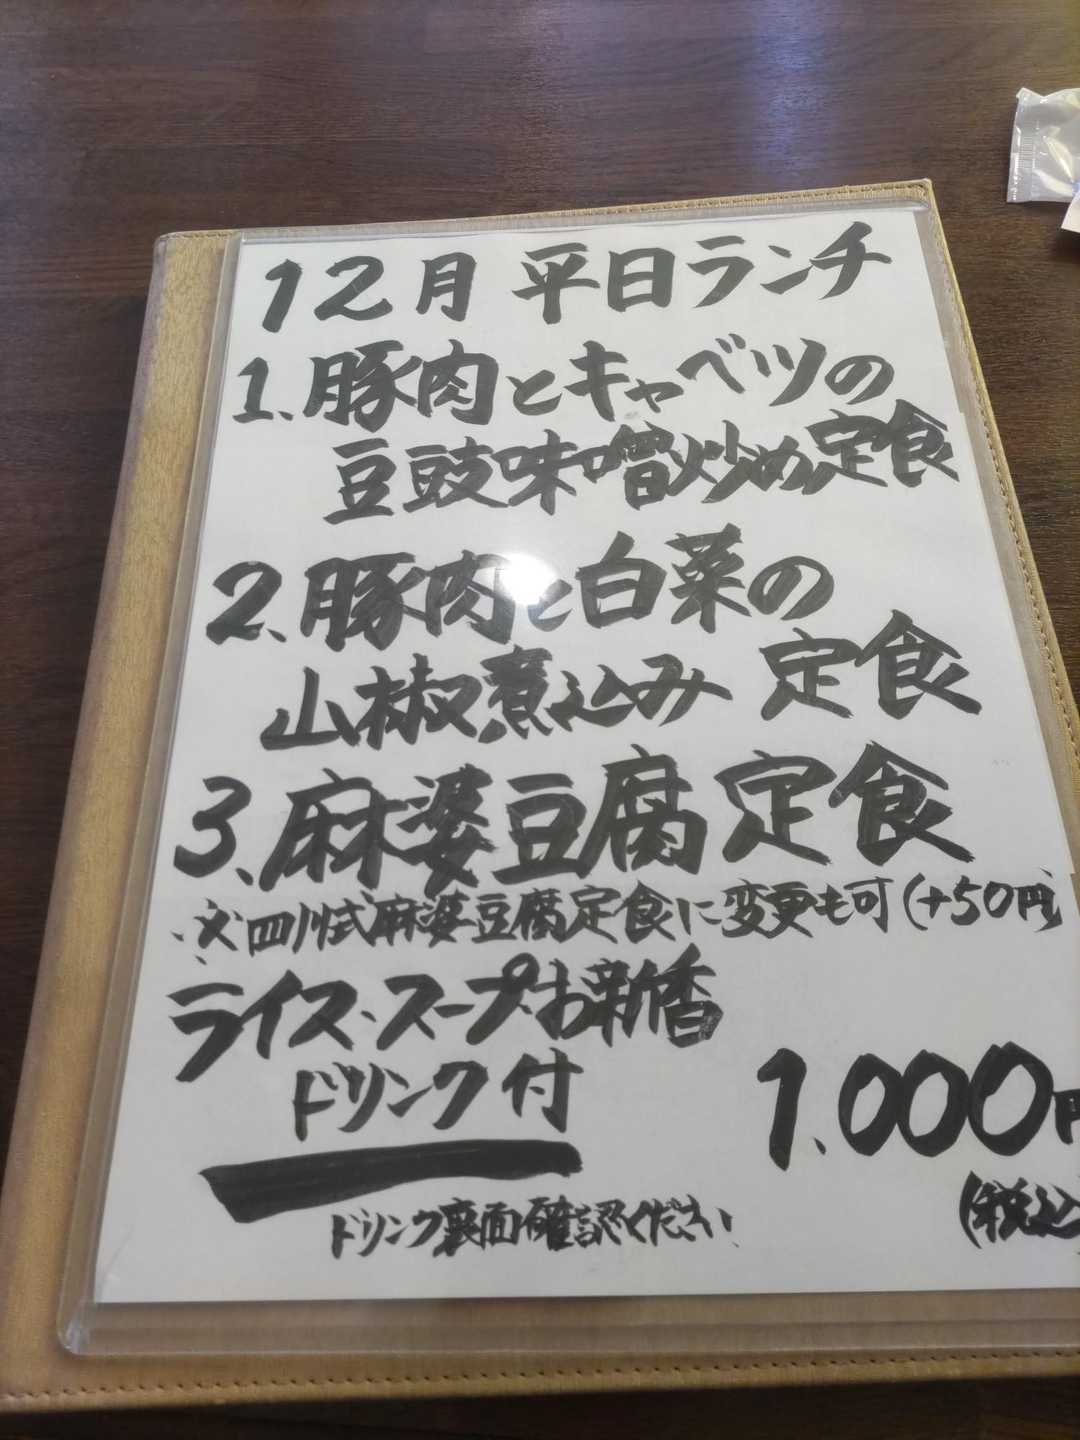 12月 平日ランチ
1、豚肉とキャベツの
豆豉味噌炒め定食
2、豚肉と白菜の
山椒煮込み 定食
3、麻婆豆腐定食
※四川式麻婆豆腐定食に変更も可(+50円)
ライス・スープ・お新香
ドリンク付
1.000円
(税込
ドリンク裏面確認ください